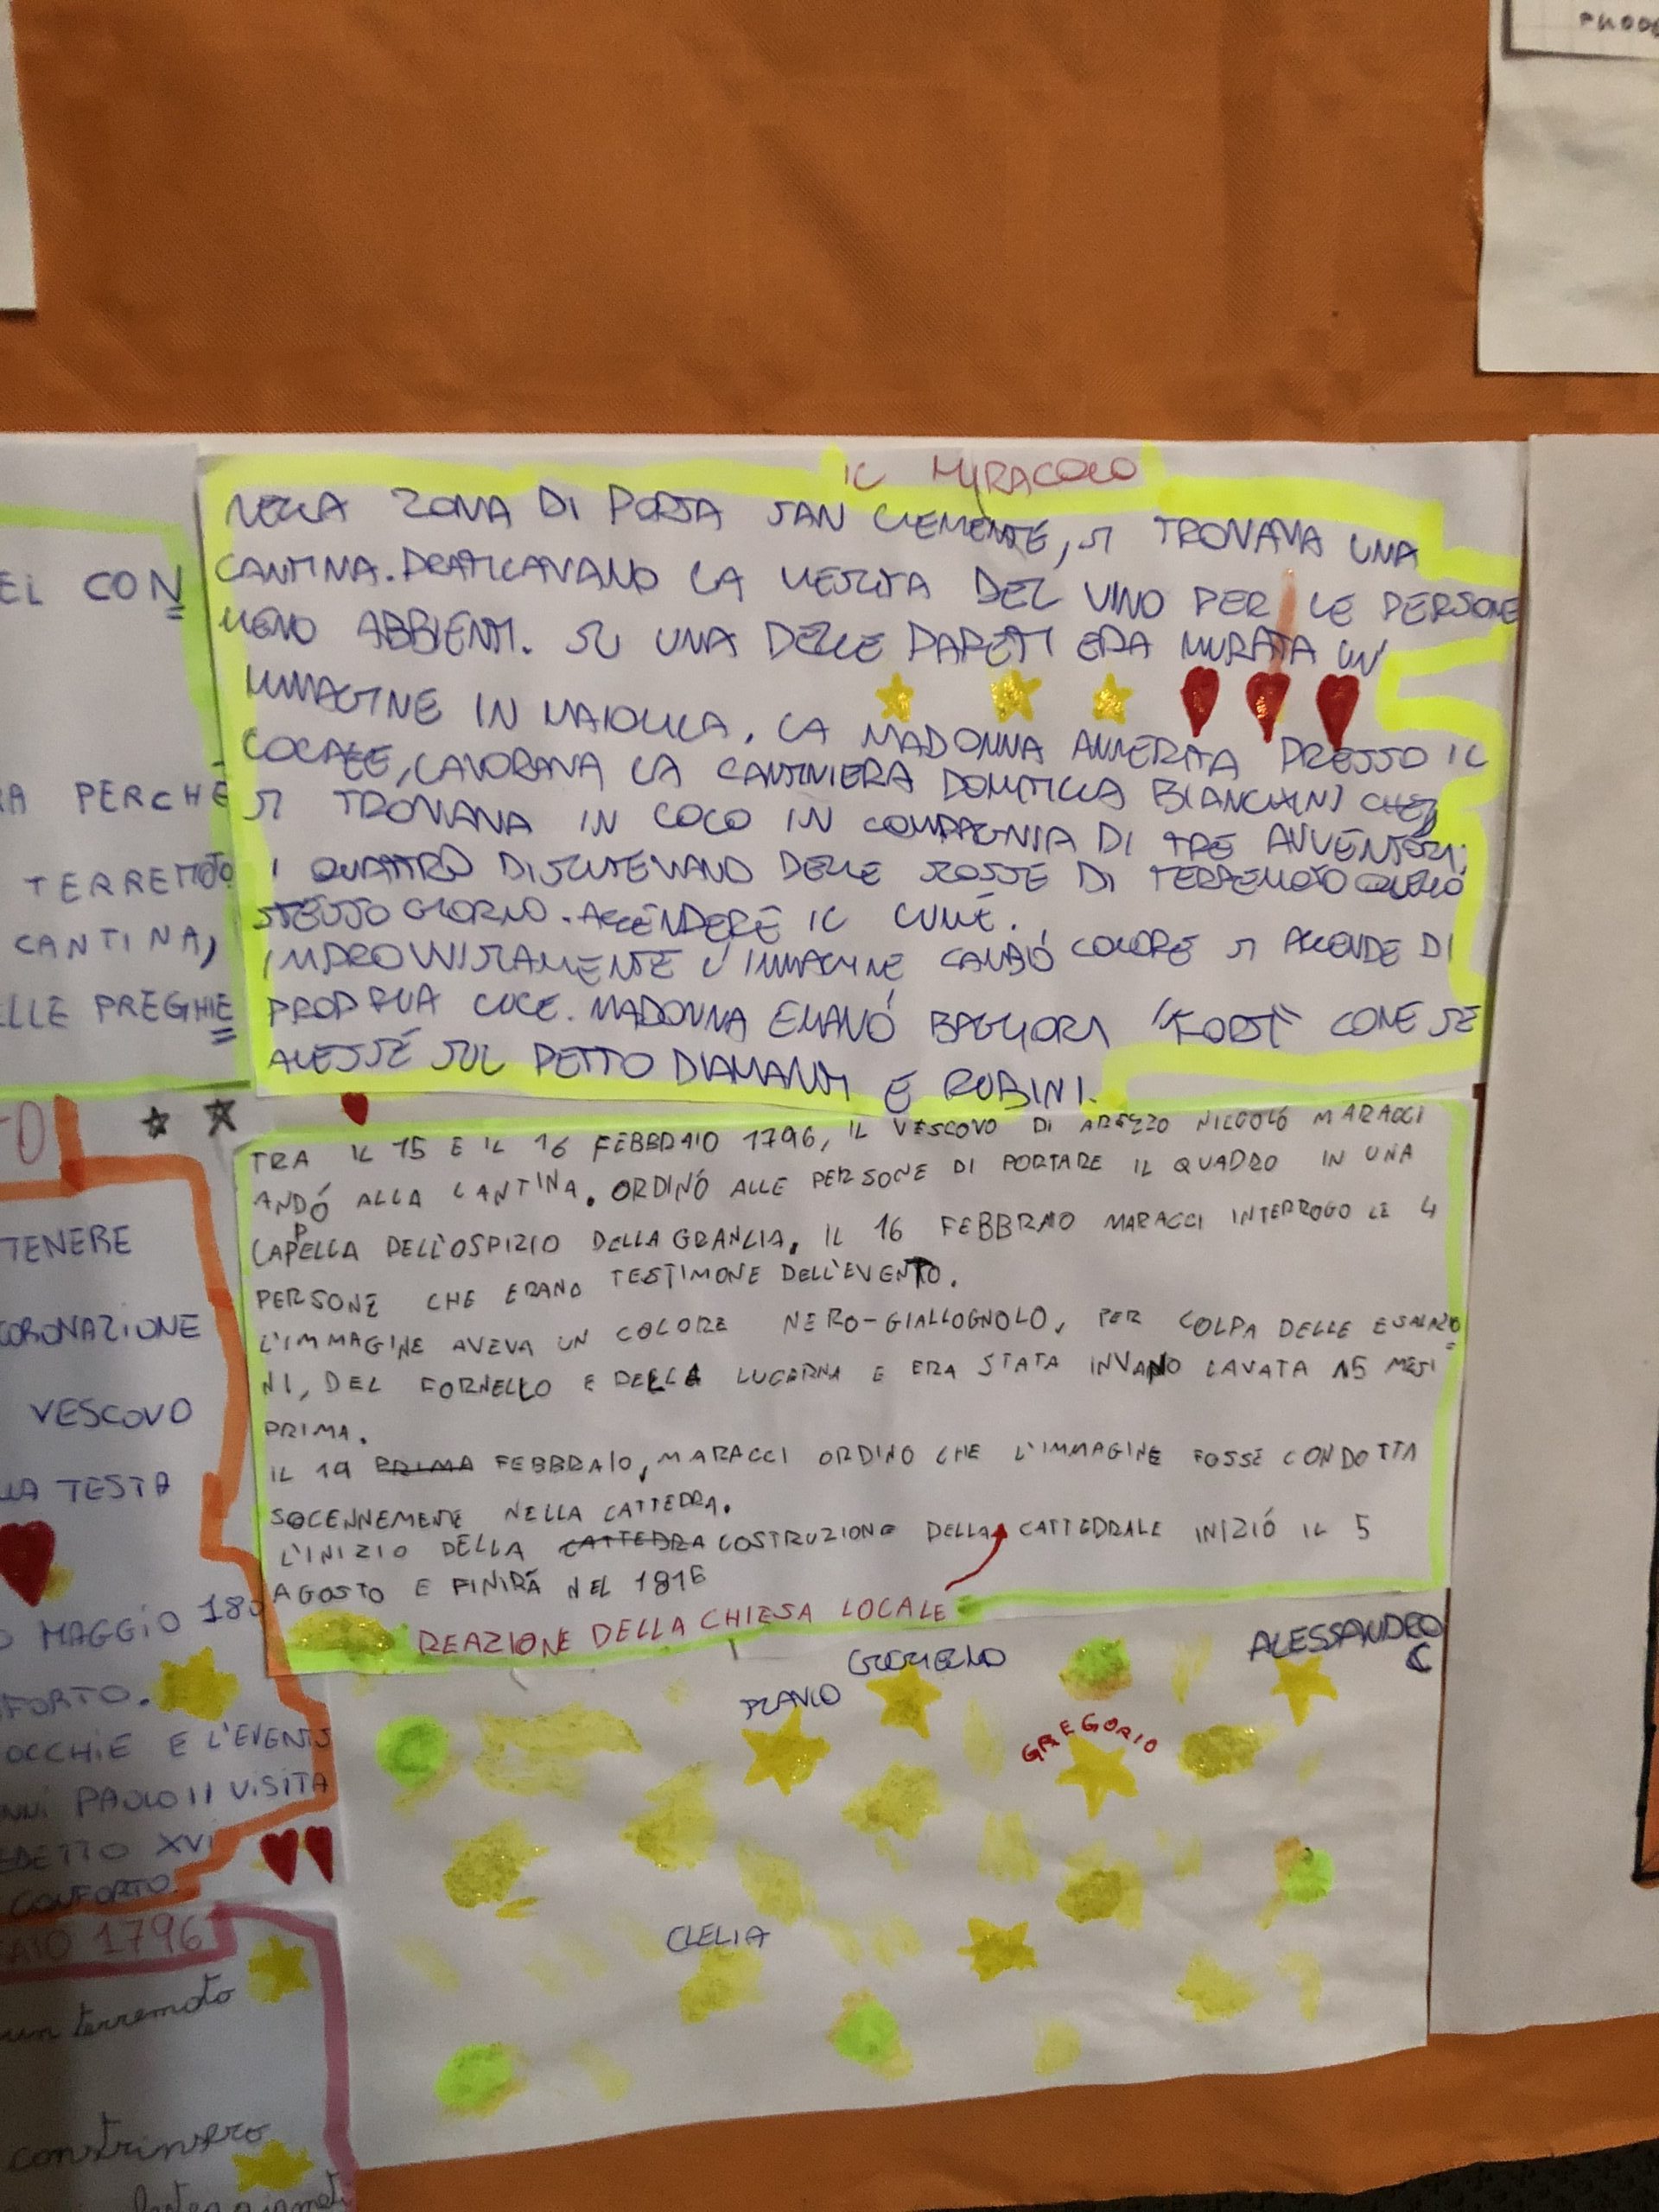 EL CON
RA PERCHÉ
TERREMOTO
CANTINA,
ELLE PREGHIE
IL MIRACOLO
NELLA ZONA DI PORTA SAN CLEMENTE, SI TROVAVA UNA
CANTINA. PRATICAVANO LA VENDITA DEL VINO PER LE PERSONE
MENO ABBIENTI. SU UNA DELLE PARETI ERA MURATA UN'
IMMAGINE IN MAIOLICA. LA MADONNA ANNERITA PRESSO IL
LOCALE, LAVORAVA LA CANTINIERA DOMITILLA BIANCHINI CHE,
SI TROVAVA IN LOCO IN COMPAGNIA DI TRE AVVENTORI.
I QUATTRO DISCUTEVANO DELLE SCOSSE DI TERREMOTO QUELLO
STESSO GIORNO. ACCENDERE IL LUME.
IMPROVVISAMENTE L'IMMAGINE CAMBIÓ COLORE SI ACCENDE DI
PROPRIA LUCE. MADONNA EMANÓ BAGLIORI "FORTI" COME SE
AVESSE SUL PETTO DIAMANTI E RUBINI.
TRA IL 15 E IL 16 FEBBRAIO 1796, IL VESCOVO DI AREZZO NICCOLÓ MARACCI
ANDÓ ALLA CANTINA. ORDINÓ ALLE PERSONE DI PORTARE IL QUADRO IN UNA
CAPPELLA DELL'OSPIZIO DELLA GRANCIA. IL 16 FEBBRAIO MARACCI INTERROGO LE 4
PERSONE CHE ERANO TESTIMONE DELL'EVENTO.
L'IMMAGINE AVEVA UN COLORE NERO-GIALLOGNOLO, PER COLPA DELLE ESALAZIO=
NI, DEL FORNELLO E DELLA LUCERNA E ERA STATA INVANO LAVATA 15 MESI
PRIMA.
IL 19 PRIMA FEBBRAIO, MARACCI ORDINO CHE L'IMMAGINE FOSSE CONDOTTA
SOCENNEMENTE NELLA CATTEDRA.
L'INIZIO DELLA CATTEDRA COSTRUZIONE DELLA CATTEDRALE INIZIÓ IL 5
AGOSTO E FINIRÀ NEL 1816
REAZIONE DELLA CHIESA LOCALE
TENERE
CORONAZIONE
VESCOVO
LLA TESTA
MAGGIO 18
FORTO.
OCCHIE E L'EVENTO
NNI PAOLO II VISITA
EDETTO XVI
CONFORTO.
AIO 1796
un terremoto
constrinsero
ALESSANDRO
C
GREGORIO
CLELIA